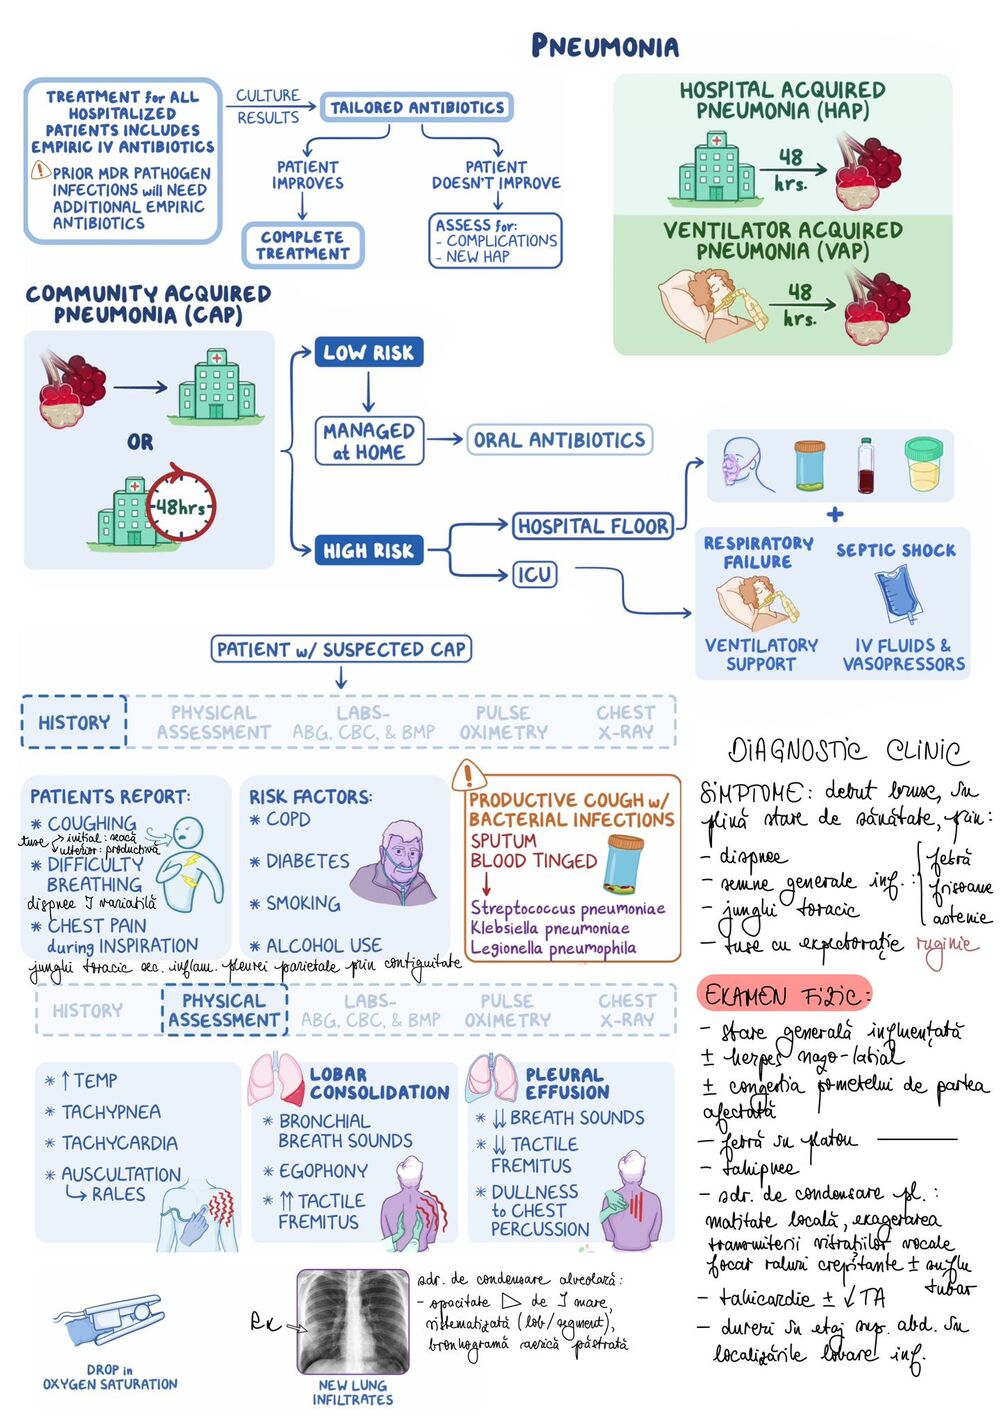 PNEUMONIA
TREATMENT for ALL
HOSPITALIZED
PATIENTS INCLUDES
EMPIRIC IV ANTIBIOTICS
! PRIOR MDR PATHOGEN
INFECTIONS will NEED
ADDITIONAL EMPIRIC
ANTIBIOTICS
CULTURE
RESULTS
TAILORED ANTIBIOTICS
PATIENT
IMPROVES
COMPLETE
TREATMENT
PATIENT
DOESN'T IMPROVE
ASSESS for:
- COMPLICATIONS
- NEW HAP
HOSPITAL ACQUIRED
PNEUMONIA (HAP)
48
hrs.
VENTILATOR ACQUIRED
PNEUMONIA (VAP)
48
hrs.
COMMUNITY ACQUIRED
PNEUMONIA (CAP)
OR
48hrs
LOW RISK
MANAGED
at HOME
ORAL ANTIBIOTICS
HIGH RISK
HOSPITAL FLOOR
ICU
+
RESPIRATORY
FAILURE
VENTILATORY
SUPPORT
SEPTIC SHOCK
IV FLUIDS &
VASOPRESSORS
PATIENT w/ SUSPECTED CAP
HISTORY
PHYSICAL
ASSESSMENT
LABS-
ABG, CBC, & BMP
PULSE
OXIMETRY
CHEST
X-RAY
PATIENTS REPORT:
* COUGHING
tuse → inițial: seacă
→ ulterior: productivă
* DIFFICULTY
BREATHING
dispnee I variabilă
* CHEST PAIN
during INSPIRATION
junghi toracic sec. inflam. pleurei parietale prin contiguitate
RISK FACTORS:
* COPD
* DIABETES
* SMOKING
* ALCOHOL USE
!
PRODUCTIVE COUGH w/
BACTERIAL INFECTIONS
SPUTUM
BLOOD TINGED
Streptococcus pneumoniae
Klebsiella pneumoniae
Legionella pneumophila
HISTORY
PHYSICAL
ASSESSMENT
LABS-
ABG, CBC, & BMP
PULSE
OXIMETRY
CHEST
X-RAY
* ↑ TEMP
* TACHYPNEA
* TACHYCARDIA
* AUSCULTATION
↳ RALES
LOBAR
CONSOLIDATION
* BRONCHIAL
BREATH SOUNDS
* EGOPHONY
* ↑↑ TACTILE
FREMITUS
PLEURAL
EFFUSION
* ↓↓ BREATH SOUNDS
* ↓↓ TACTILE
FREMITUS
* DULLNESS
to CHEST
PERCUSSION
DROP in
OXYGEN SATURATION
Rx →
NEW LUNG
INFILTRATES
sdr. de condensare alveolară:
- opacitate ▷ de I mare,
sistematizată (lob/segment),
bronhogramă aerică păstrată
DIAGNOSTIC CLINIC
SIMPTOME: debut brusc, în
plină stare de sănătate, prin:
- dispnee
- semne generale inf. :
febră
frisoane
astenie
- junghi toracic
- tuse cu expectorație ruginie
EXAMEN FIZIC:
- stare generală influențată
± herpes nazo-labial
± congestia pometelui de partea
afectată
- febră în platou
- tahipnee
- sdr. de condensare pl. :
matitate locală, exagerarea
transmiterii vibrațiilor vocale
focar raluri crepitante ± suflu
tubar
- tahicardie ± ↓TA
- dureri în etaj sup. abd. în
localizările lobare inf.